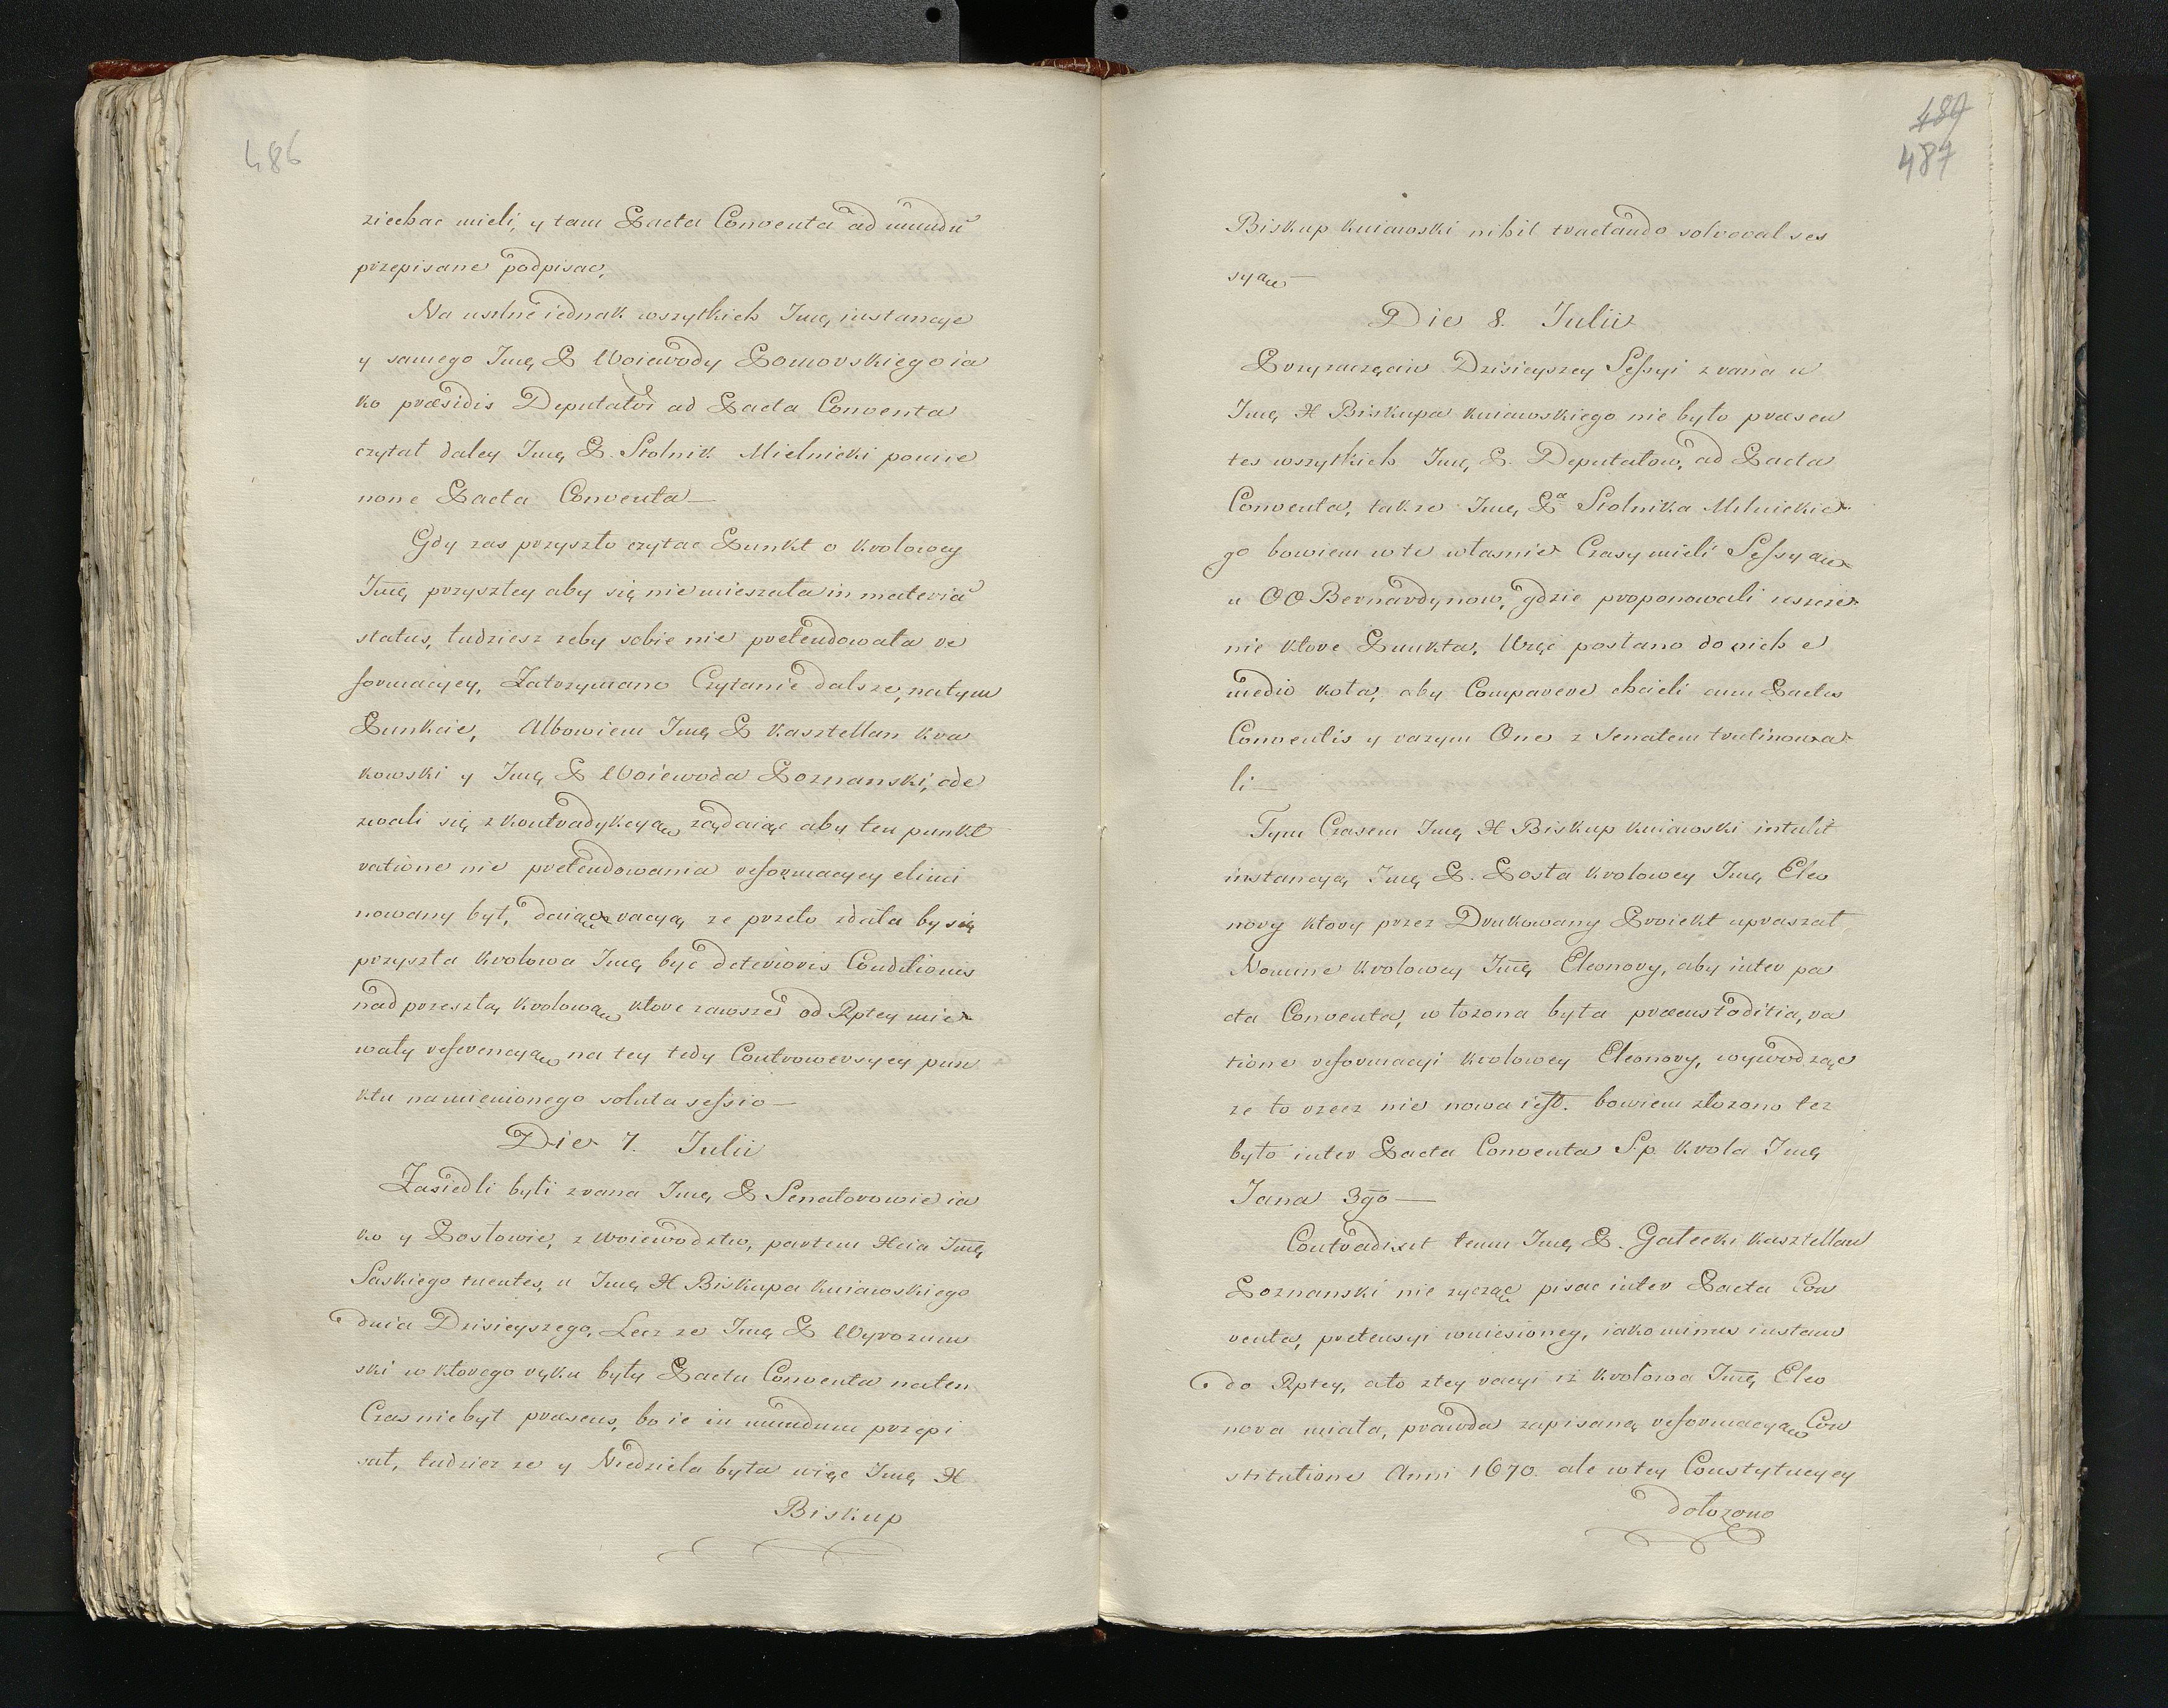 486
ziechac mieli, y tam Pacta Conventa ad mundũ
przepisane podpisac,
Na uslne iednak wszytkich Jmę instancye
y samego Jmę P Woiewody Pomorskiego ia
ko præsidis Deputator ad Pacta Conventa
czytał daley Jmę P. Stolnik Mielnicki pomie
nione Pacta Conventa —
Gdy zas przyszło czytac Punkt o Krolowey
Jmę przyszłey aby się nie mieszała in materia
status, tudziesz zeby sobie nie pretendowała re
formacyey, Zatrzymano Czytanie dalsze, na tym
Punkcie, Albowiem Jmę P Kasztellan Kra
kowski y Jmę P Woiewoda Poznanski, ode
zwali się z kontradykcyą żądaiąc aby ten punkt
ratione nie pretendowania reformacyey elimi
nowany był, daiąc racyą, ze przeto zdała by się
przyszła Krolowa Jmę byc deterioris Conditionis
nad przeszłą Krolową, ktore zawsze od Rptey mie
wały referencyą, na tey tedy Controwersyey pun
ktu namienionego soluta sessio —
Die 7. Julii
Zasiedli byli zrana Jmę P Senatorowie ia
ko y Posłowie, z Woiewodztw, partem Xcia Jmę
Saskiego tuentes, u Jmę X Biskupa Kuiawskiego
dnia Dzisieyszego, Lecz ze Jmę P Wyrozum
ski w ktorego ręku były Pacta Conventa na ten
Czas niebył præsens, bo ie in mundum przepi
sał, tudziez ze y Niedziela była więc Jmę X
Biskup
487
487
Biskup Kuiawski nihil tractando solvoval ses
syą —
Die 8. Julii
Przy zaczęciu Dzisieyszey Sessyi zrana u
Jmę X Biskupa Kuiawskiego nie było præsen
tes wszytkich Jmę P. Deputatow, ad Pacta
Conventa, takze Jmę Pa Stolnika Milnickie
go bowiem w te własnie Czasy mieli Sessyą
u OO Bernardynow, gdzie proponowali ieszcze
nie ktore Punkta, Więc posłano do nich e
medio koła, aby Comparere chcieli cum Pactis
Conventis y razym One z Senatem trutinowa
li —
Tym Czasem Jmę X Biskup Kuiawski intulit
instancyą Jmę P. Posła Krolowey Jmę Eleo
nory ktory przez Drukowany Proiekt upraszał
Nomine Krolowey Jmę Eleonory, aby inter pa
cta Conventa, włozona była præcustoditia, ra
tione reformacyi Krolowey Eleonory, wywodząc
ze to rzecz nie nowa iest. bowiem złozono tez
było inter Pacta Conventa S.p. Krola Jmę
Jana 3go —
Contradixit temu Jmę P. Galecki Kasztellan
Poznanski nie zycząc pisac inter Pacta Con
venta, pretensyi wniesioney, iako minus instan
do Rptey, a to z tey racyi iz Krolowa Jmę Eleo
nora miała, prawda zapisaną reformacyą Con
stitutione Anni 1670. ale w tey Constytucyey
dołozono